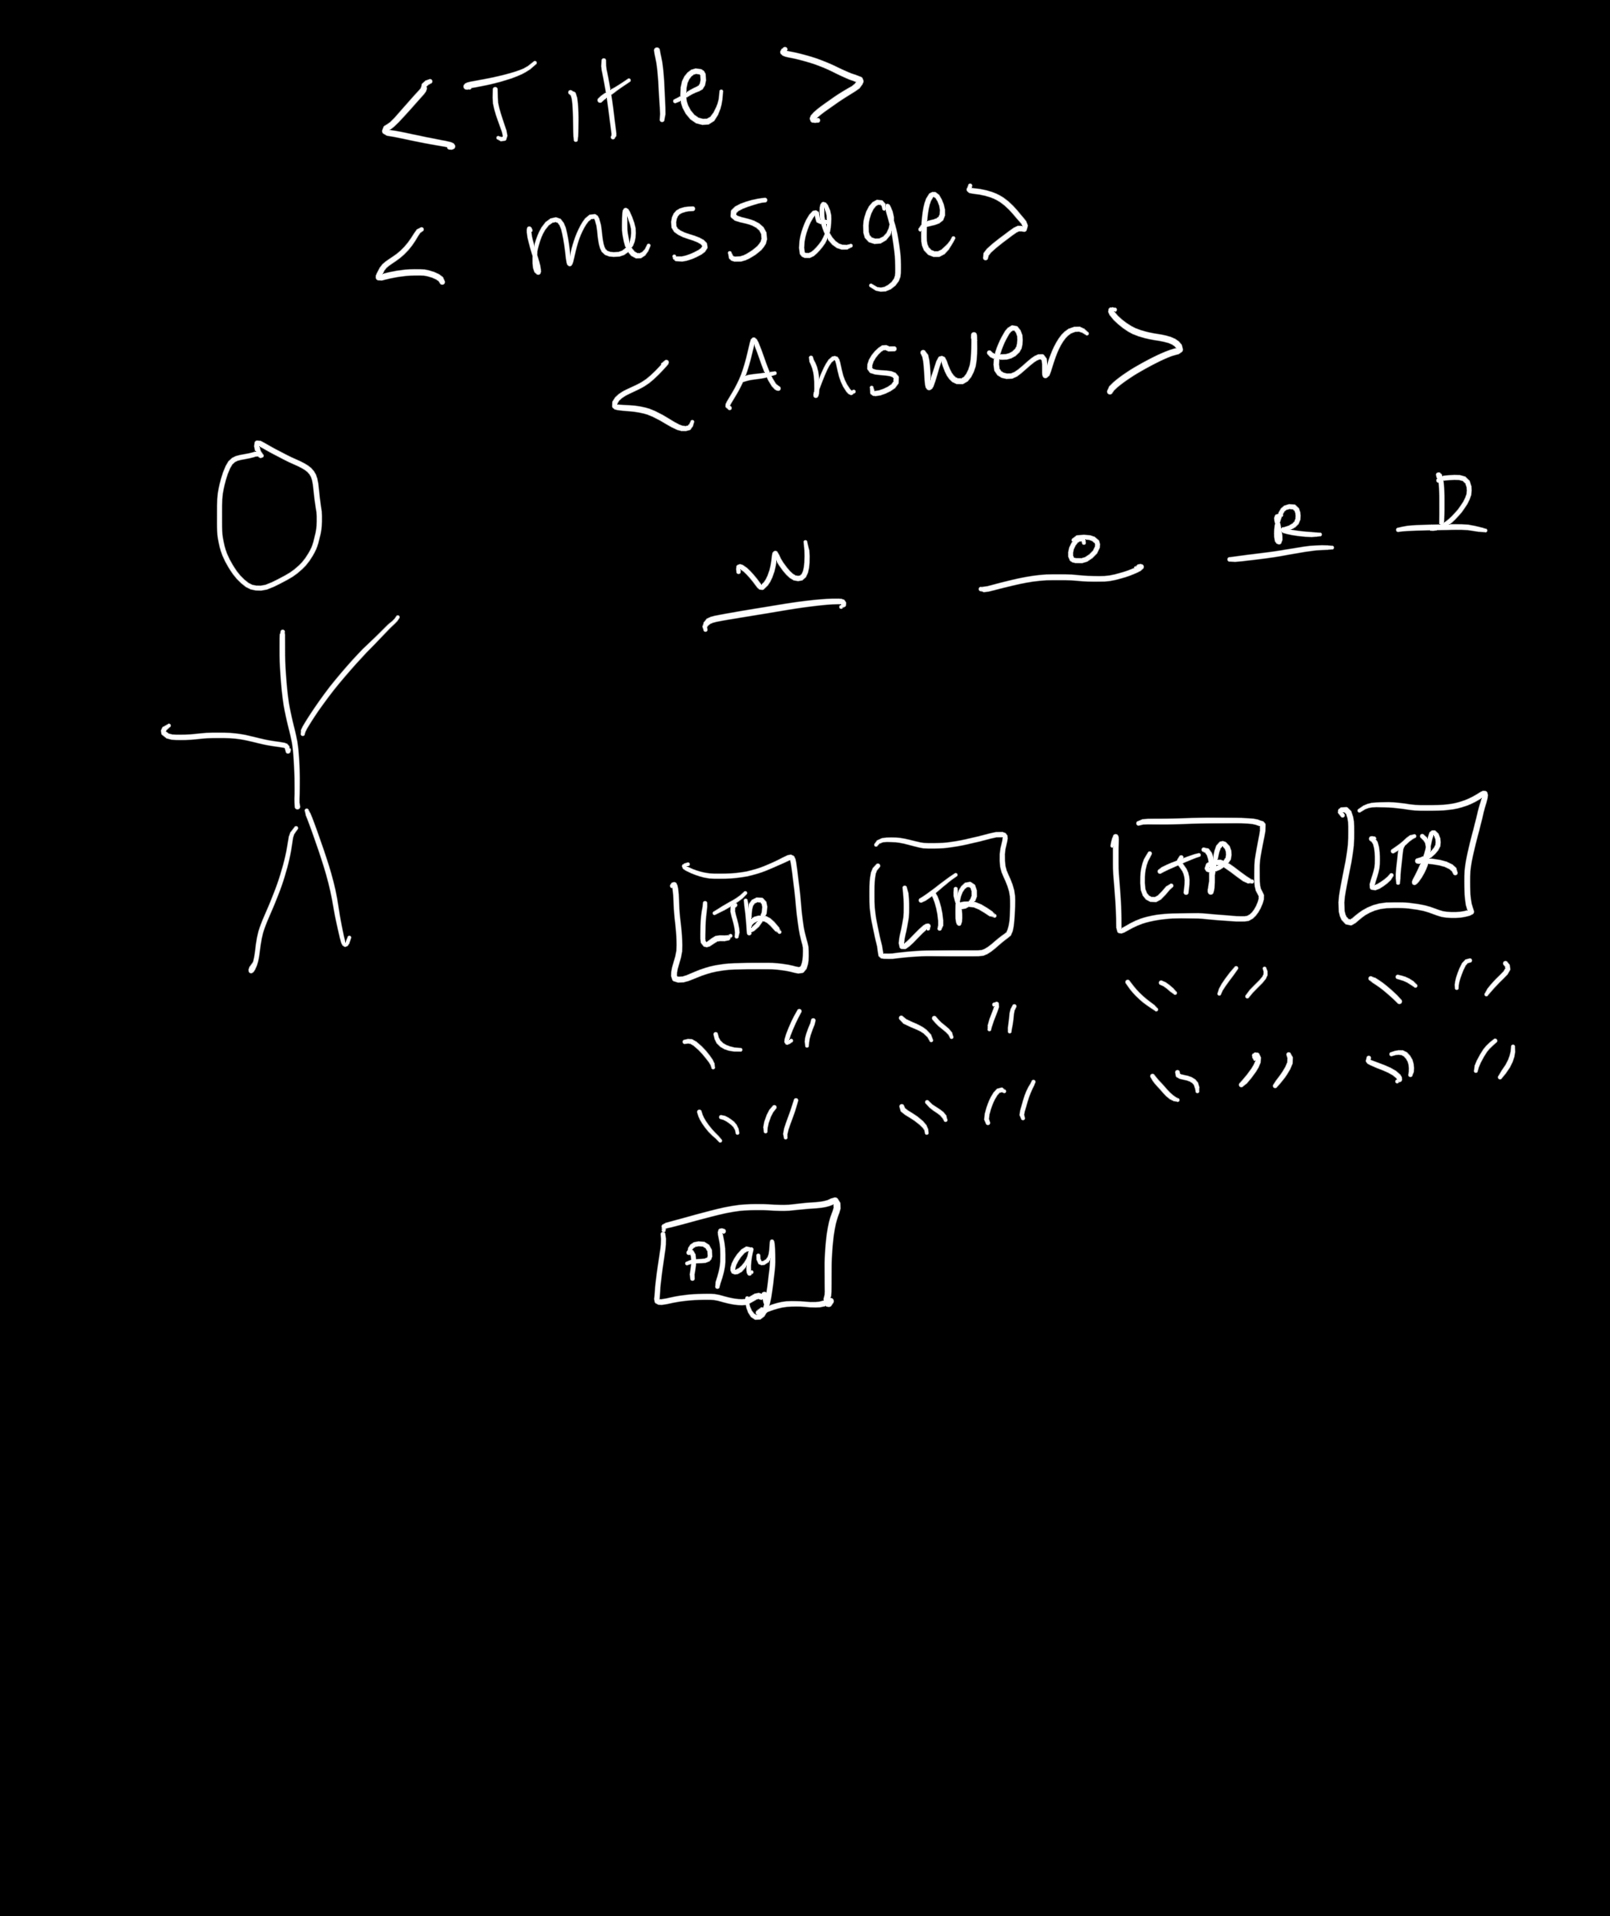 <Title>
<message>
<Answer>
W O R D
LTR LTR LTR LTR
" " " " " " " "
" " " " " " " "
Play